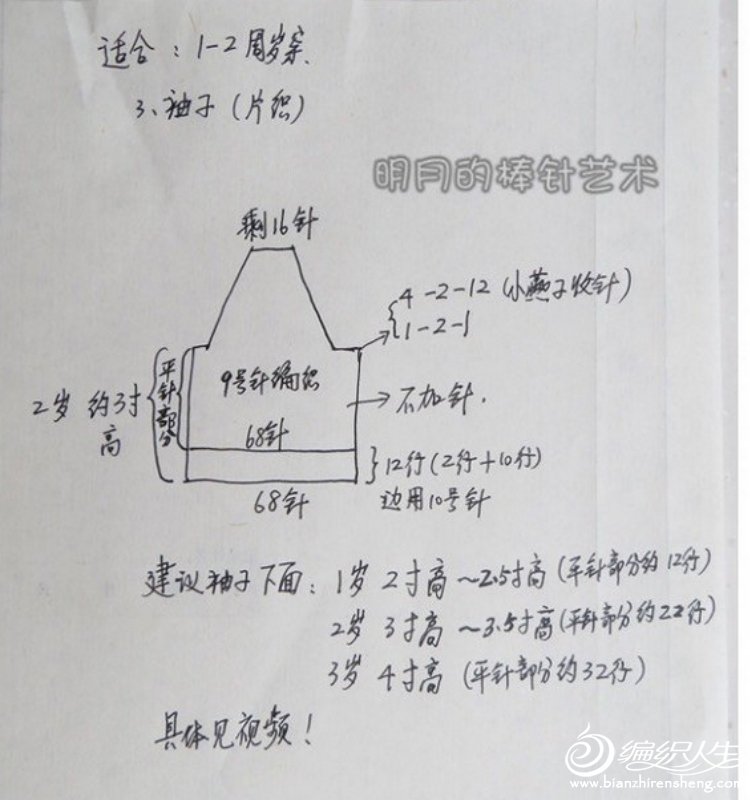 适合：1-2周岁亲
3、袖子（片织）
明月的棒针艺术
剩16针
4-2-12（小燕子收针）
1-2-1
平针部分
9号针编织
2岁 约3寸高
不加针.
68针
12行（2行+10行）
68针
边用10号针
建议袖子下面：1岁 2寸高～2.5寸高（平针部分约12行）
2岁 3寸高～3.5寸高（平针部分约22行）
3岁 4寸高（平针部分约32行）
具体见视频！
编织人生
www.bianzhirensheng.com